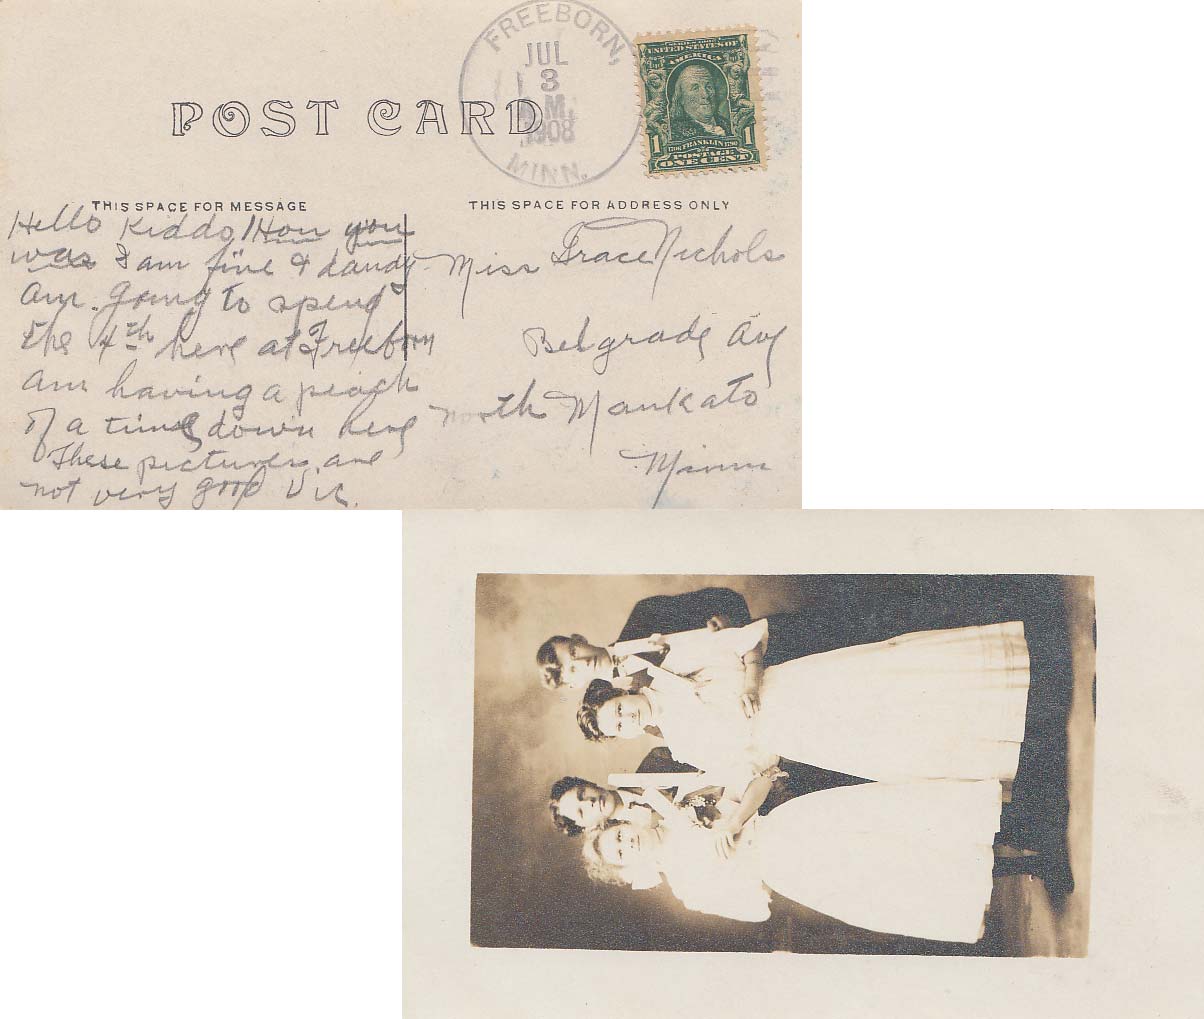 FREEBORN,
JUL
3
M.
1908
MINN.
SERIES 1902
UNITED STATES OF
AMERICA
1 1
1706 FRANKLIN 1790
POSTAGE
ONE CENT
POST CARD
THIS SPACE FOR MESSAGE
THIS SPACE FOR ADDRESS ONLY
Hello Kiddo! How you
was I am fine & dandy
am going to spend
the 4th here at Freeborn
am having a peach
of a time down here
These pictures are
not very good Vic.
Miss Grace Nichols
Belgrade Av
North Mankato
Minn